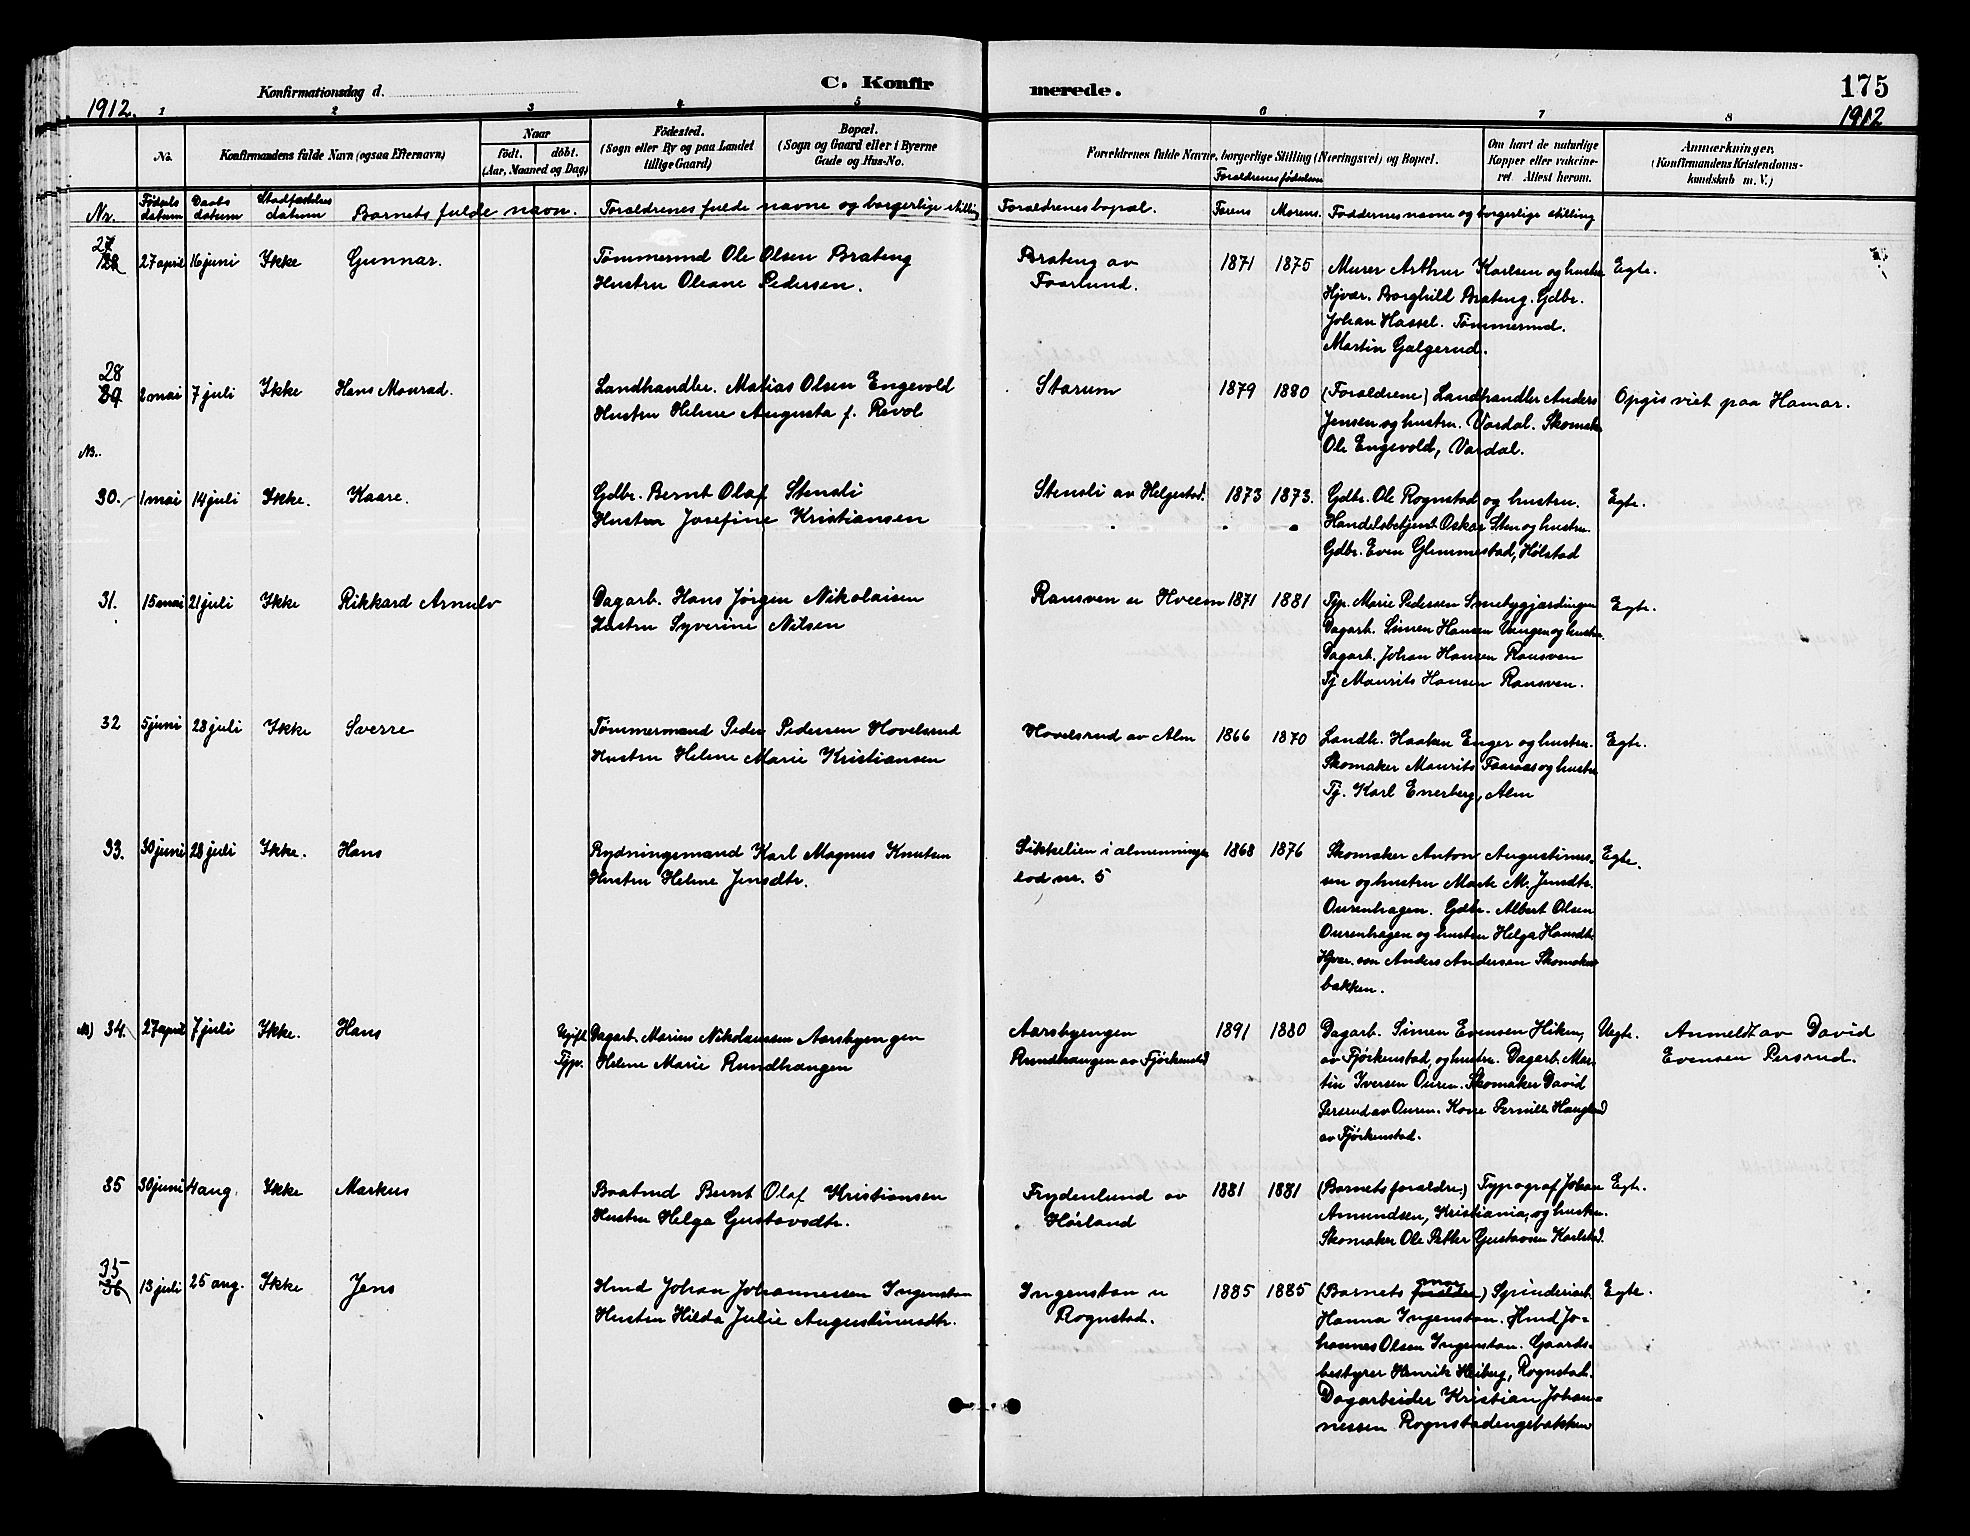 C. Konfirmerede.
175
1912.
Konfirmationsdag d.
1912
1 2 3 4 5 6 7 8
No.
Konfirmandens fulde Navn (ogsaa Efternavn)
Naar
født. døbt.
(Aar, Maaned og Dag)
Fødested.
(Sogn eller By og paa Landet
tillige Gaard)
Bopæl.
(Sogn og Gaard eller i Byerne
Gade og Hus-No.
Forældrenes fulde Navne, borgerlige Stilling (Næringsvei) og Bopæl.
Forældrenes fødselsaar
Om havt de naturlige
Kopper eller vakcine-
ret. Attest herom.
Anmærkninger,
(Konfirmandens Kristendoms-
kundskab m. V.)
Nr. Fødsels datum Daabs datum Stadfæstelses datum Barnets fulde navn. Forældrenes fulde navne og borgerlige stilling Forældrenes bopæl. Farens Morens Faddernes navne og borgerlige stilling
27 27 april 16 juni Ikke Gunnar.
Tømmermd Ole Olsen Brateng
Hustru Oleane Pedersen.
Brateng av
Faarlund.
1871 1875
Murer Arthur Karlsen og hustru
Hjvær. Borghild Brateng. Gdbr.
Johan Hassel. Tømmermd.
Martin Galgerud.
Egte.
28
29 2 mai 7 juli Ikke Hans Monrad.
Landhandler. Matias Olsen Engevold
Hustru Helene Augusta f. Revol
Starum
1879 1880
(Forældrene) Landhandler Anders
Jensen og hustru. Vardal. Skomaker
Ole Engevold, Vardal.
Opgis viet paa Hamar.
NB.
30. 1 mai 14 juli Ikke. Kaare.
Gdbr. Bernt Olaf Stensli
Hustru Josefine Kristiansen
Stensli av Helgestad
1873 1873.
Gdbr. Ole Rognstad og hustru.
Handelsbetjent Oskar Sten og hustru
Gdbr. Even Glemmestad, Holstad
Egte.
31. 15 mai 21 juli Ikke Rikkard Arnulv
Dagarb. Hans Jørgen Nikolaisen
Hustru Syverine Nilsen
Ransven u Hveem
1871 1881
Typ. Marie Pedersen Smebygjærdingen
Dagarb. Simen Hansen Vangen og hustru.
Dagarb. Johan Hansen Ransven
Tj Maurits Hansen Ransven.
Egte.
32 5 juni 28 juli Ikke Sverre
Tømmermand Peder Pedersen Hovelsrud
Hustru Helene Marie Kristiansen
Hovelsrud av Alm
1866 1870
Landh. Haaken Enger og hustru.
Skomaker Maurits Faaraas og hustru
Tj. Karl Enerberg, Alm
Egte.
33. 30 juni 28 juli Ikke. Hans
Rydningsmand Karl Magnus Knutsen
Hustru Helene Jensdtr.
Sikkelien i almenningen
lod nr. 5
1868 1876
Skomaker Anton Augustinus-
sen og hustru Marte M. Jensdtr.
Ourenhagen. Gdbr. Albert Olsen
Ourenhagen og hustru Helga Hansdtr.
Hjvær. søn Anders Andersen Skomaker
bakken.
Egte.
34. 27 april 7 juli Ikke. Hans
Ugift Dagarb. Marius Nikolaussen Aarsbyengen
Typ. Helene Marie Rundhaugen
Aarsbyengen
Rundhaugen av Fjørkenstad
1891 1880
Dagarb. Simen Evensen Hiken,
av Fjørkenstad, og hustru. Dagarb. Mar-
tin Iversen Ouren. Skomaker David
Persrud av Ouren. Kone Pernille Haugland
av Fjørkenstad.
Uegte.
Anmeldt av David
Evensen Persrud.
35 30 juni 4 aug. Ikke Markus
Baatmd Bernt Olaf Kristiansen
Hustru Helga Gustavsdtr.
Frydenlund av
Hørland
1881 1881
(Barnets forældre) Typograf Johan
Amundsen, Kristiania, og hustru.
Skomaker Ole Petter Gustavsen Karlstad.
Egte.
35
36 13 juli 25 aug. Ikke Jens
Hmd Johan Johannessen Ingenstan
Hustru Hilda Julie Augustinusdtr.
Ingenstan u
Rognstad.
1885 1885
(Barnets mor forældre) Spinderiarb.
Hanna Ingenstan. Hmd Jo-
hannes Olsen Ingenstan. Gaards-
bestyrer Henrik Heiberg, Rognstad.
Dagarbeider Kristian Johan-
nessen Rognstadengebakken
Egte.